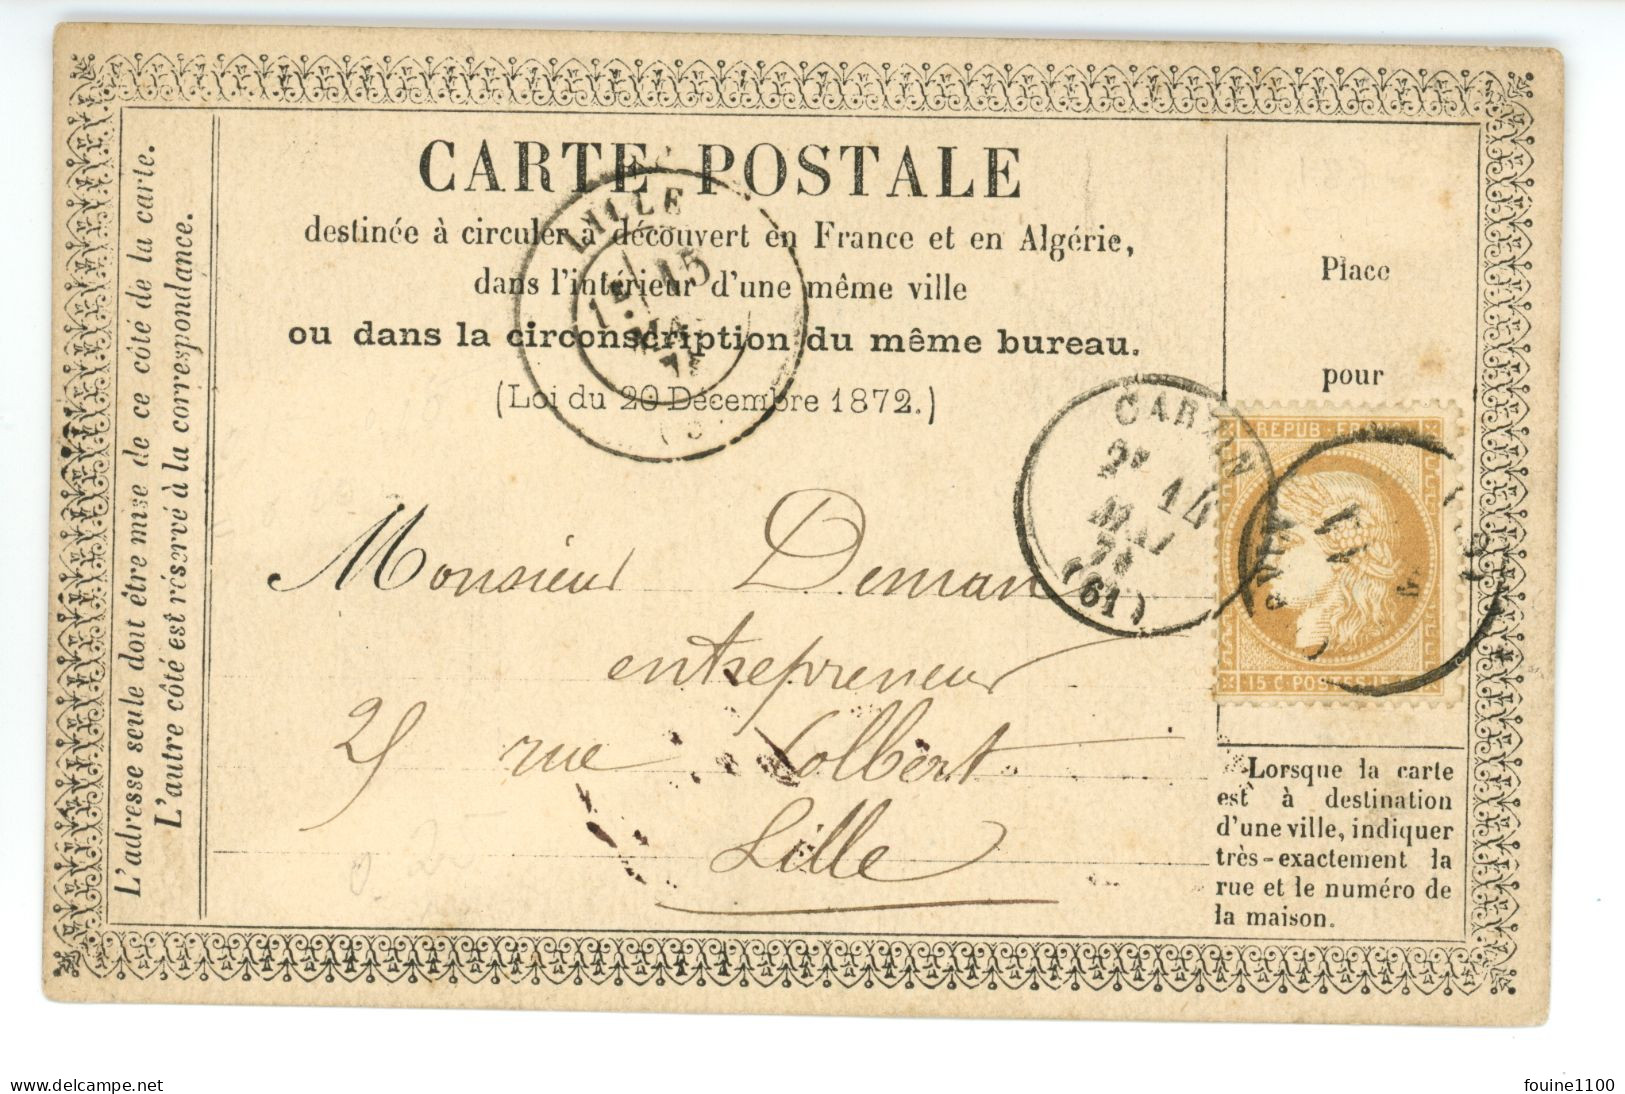 CARTE POSTALE
destinée à circuler à découvert en France et en Algérie,
dans l'intérieur d'une même ville
ou dans la circonscription du même bureau.
(Loi du 20 Décembre 1872.)
L'adresse seule doit être mise de ce côté de la carte.
L'autre côté est réservé à la correspondance.
Place
pour
LILLE
15
CARVIN
2E
14
MAI
(61)
REPUB
15 C. POSTES 15
Monsieur Deman
entrepreneur
25 rue Colbert
Lille
Lorsque la carte
est à destination
d'une ville, indiquer
très-exactement la
rue et le numéro de
la maison.
www.delcampe.net
fouine1100